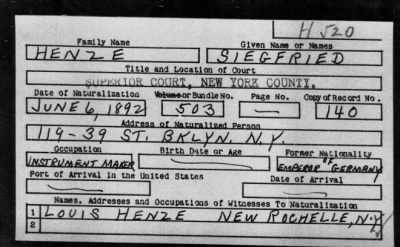 H 520
Family Name Given Name or Names
HENZE SIEGFRIED
Title and Location of Court
SUPERIOR COURT, NEW YORK COUNTY.
Date of Naturalization Volume or Bundle No. Page No. Copy of Record No.
JUNE 6, 1892 503 — 140
Address of Naturalized Person
119-39 ST. BKLYN. N.Y.
Occupation Birth Date or Age Former Nationality
INSTRUMENT MAKER — EMPEROR OF GERMANY
Port of Arrival in the United States Date of Arrival
Names, Addresses and Occupations of Witnesses To Naturalization
1 LOUIS HENZE NEW ROCHELLE, N.Y.
2